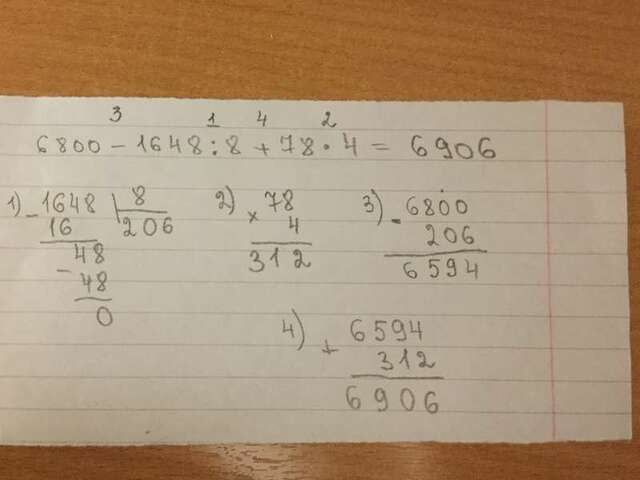 3 1 4 2
6800 - 1648 : 8 + 78 · 4 = 6906
1) - 1648 | 8
16 206
- 48
48
0
2) × 78
4
312
3) - 6800
206
6594
4) + 6594
312
6906